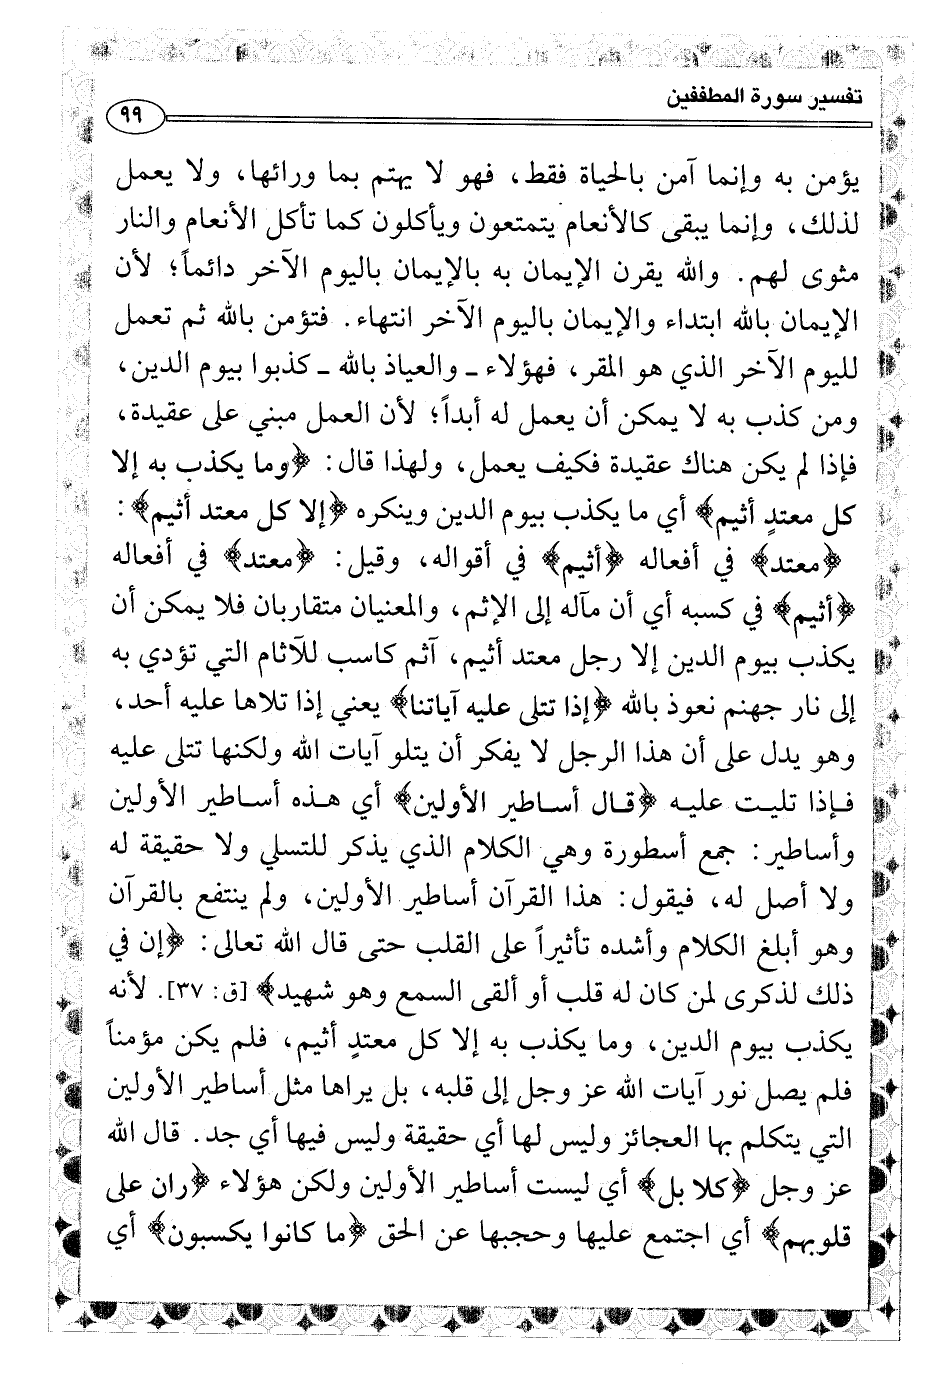 تفسير سورة المطففين
٩٩
يؤمن به وإنما آمن بالحياة فقط، فهو لا يهتم بما ورائها، ولا يعمل
لذلك، وإنما يبقى كالأنعام يتمتعون ويأكلون كما تأكل الأنعام والنار
مثوى لهم. والله يقرن الإيمان به بالإيمان باليوم الآخر دائماً؛ لأن
الإيمان بالله ابتداء والإيمان باليوم الآخر انتهاء. فتؤمن بالله ثم تعمل
لليوم الآخر الذي هو المقر، فهؤلاء ـ والعياذ بالله ـ كذبوا بيوم الدين،
ومن كذب به لا يمكن أن يعمل له أبداً؛ لأن العمل مبني على عقيدة،
فإذا لم يكن هناك عقيدة فكيف يعمل، ولهذا قال: ﴿وما يكذب به إلا
كل معتدٍ أثيم﴾ أي ما يكذب بيوم الدين وينكره ﴿إلا كل معتد أثيم﴾:
﴿معتد﴾ في أفعاله ﴿أثيم﴾ في أقواله، وقيل: ﴿معتد﴾ في أفعاله
﴿أثيم﴾ في كسبه أي أن مآله إلى الإثم، والمعنيان متقاربان فلا يمكن أن
يكذب بيوم الدين إلا رجل معتد أثيم، آثم كاسب للآثام التي تؤدي به
إلى نار جهنم نعوذ بالله ﴿إذا تتلى عليه آياتنا﴾ يعني إذا تلاها عليه أحد،
وهو يدل على أن هذا الرجل لا يفكر أن يتلو آيات الله ولكنها تتلى عليه
فإذا تليت عليه ﴿قال أساطير الأولين﴾ أي هذه أساطير الأولين
وأساطير: جمع أسطورة وهي الكلام الذي يذكر للتسلي ولا حقيقة له
ولا أصل له، فيقول: هذا القرآن أساطير الأولين، ولم ينتفع بالقرآن
وهو أبلغ الكلام وأشده تأثيراً على القلب حتى قال الله تعالى: ﴿إن في
ذلك لذكرى لمن كان له قلب أو ألقى السمع وهو شهيد﴾ [ق: ٣٧]. لأنه
يكذب بيوم الدين، وما يكذب به إلا كل معتدٍ أثيم، فلم يكن مؤمناً
فلم يصل نور آيات الله عز وجل إلى قلبه، بل يراها مثل أساطير الأولين
التي يتكلم بها العجائز وليس لها أي حقيقة وليس فيها أي جد. قال الله
عز وجل ﴿كلا بل﴾ أي ليست أساطير الأولين ولكن هؤلاء ﴿ران على
قلوبهم﴾ أي اجتمع عليها وحجبها عن الحق ﴿ما كانوا يكسبون﴾ أي